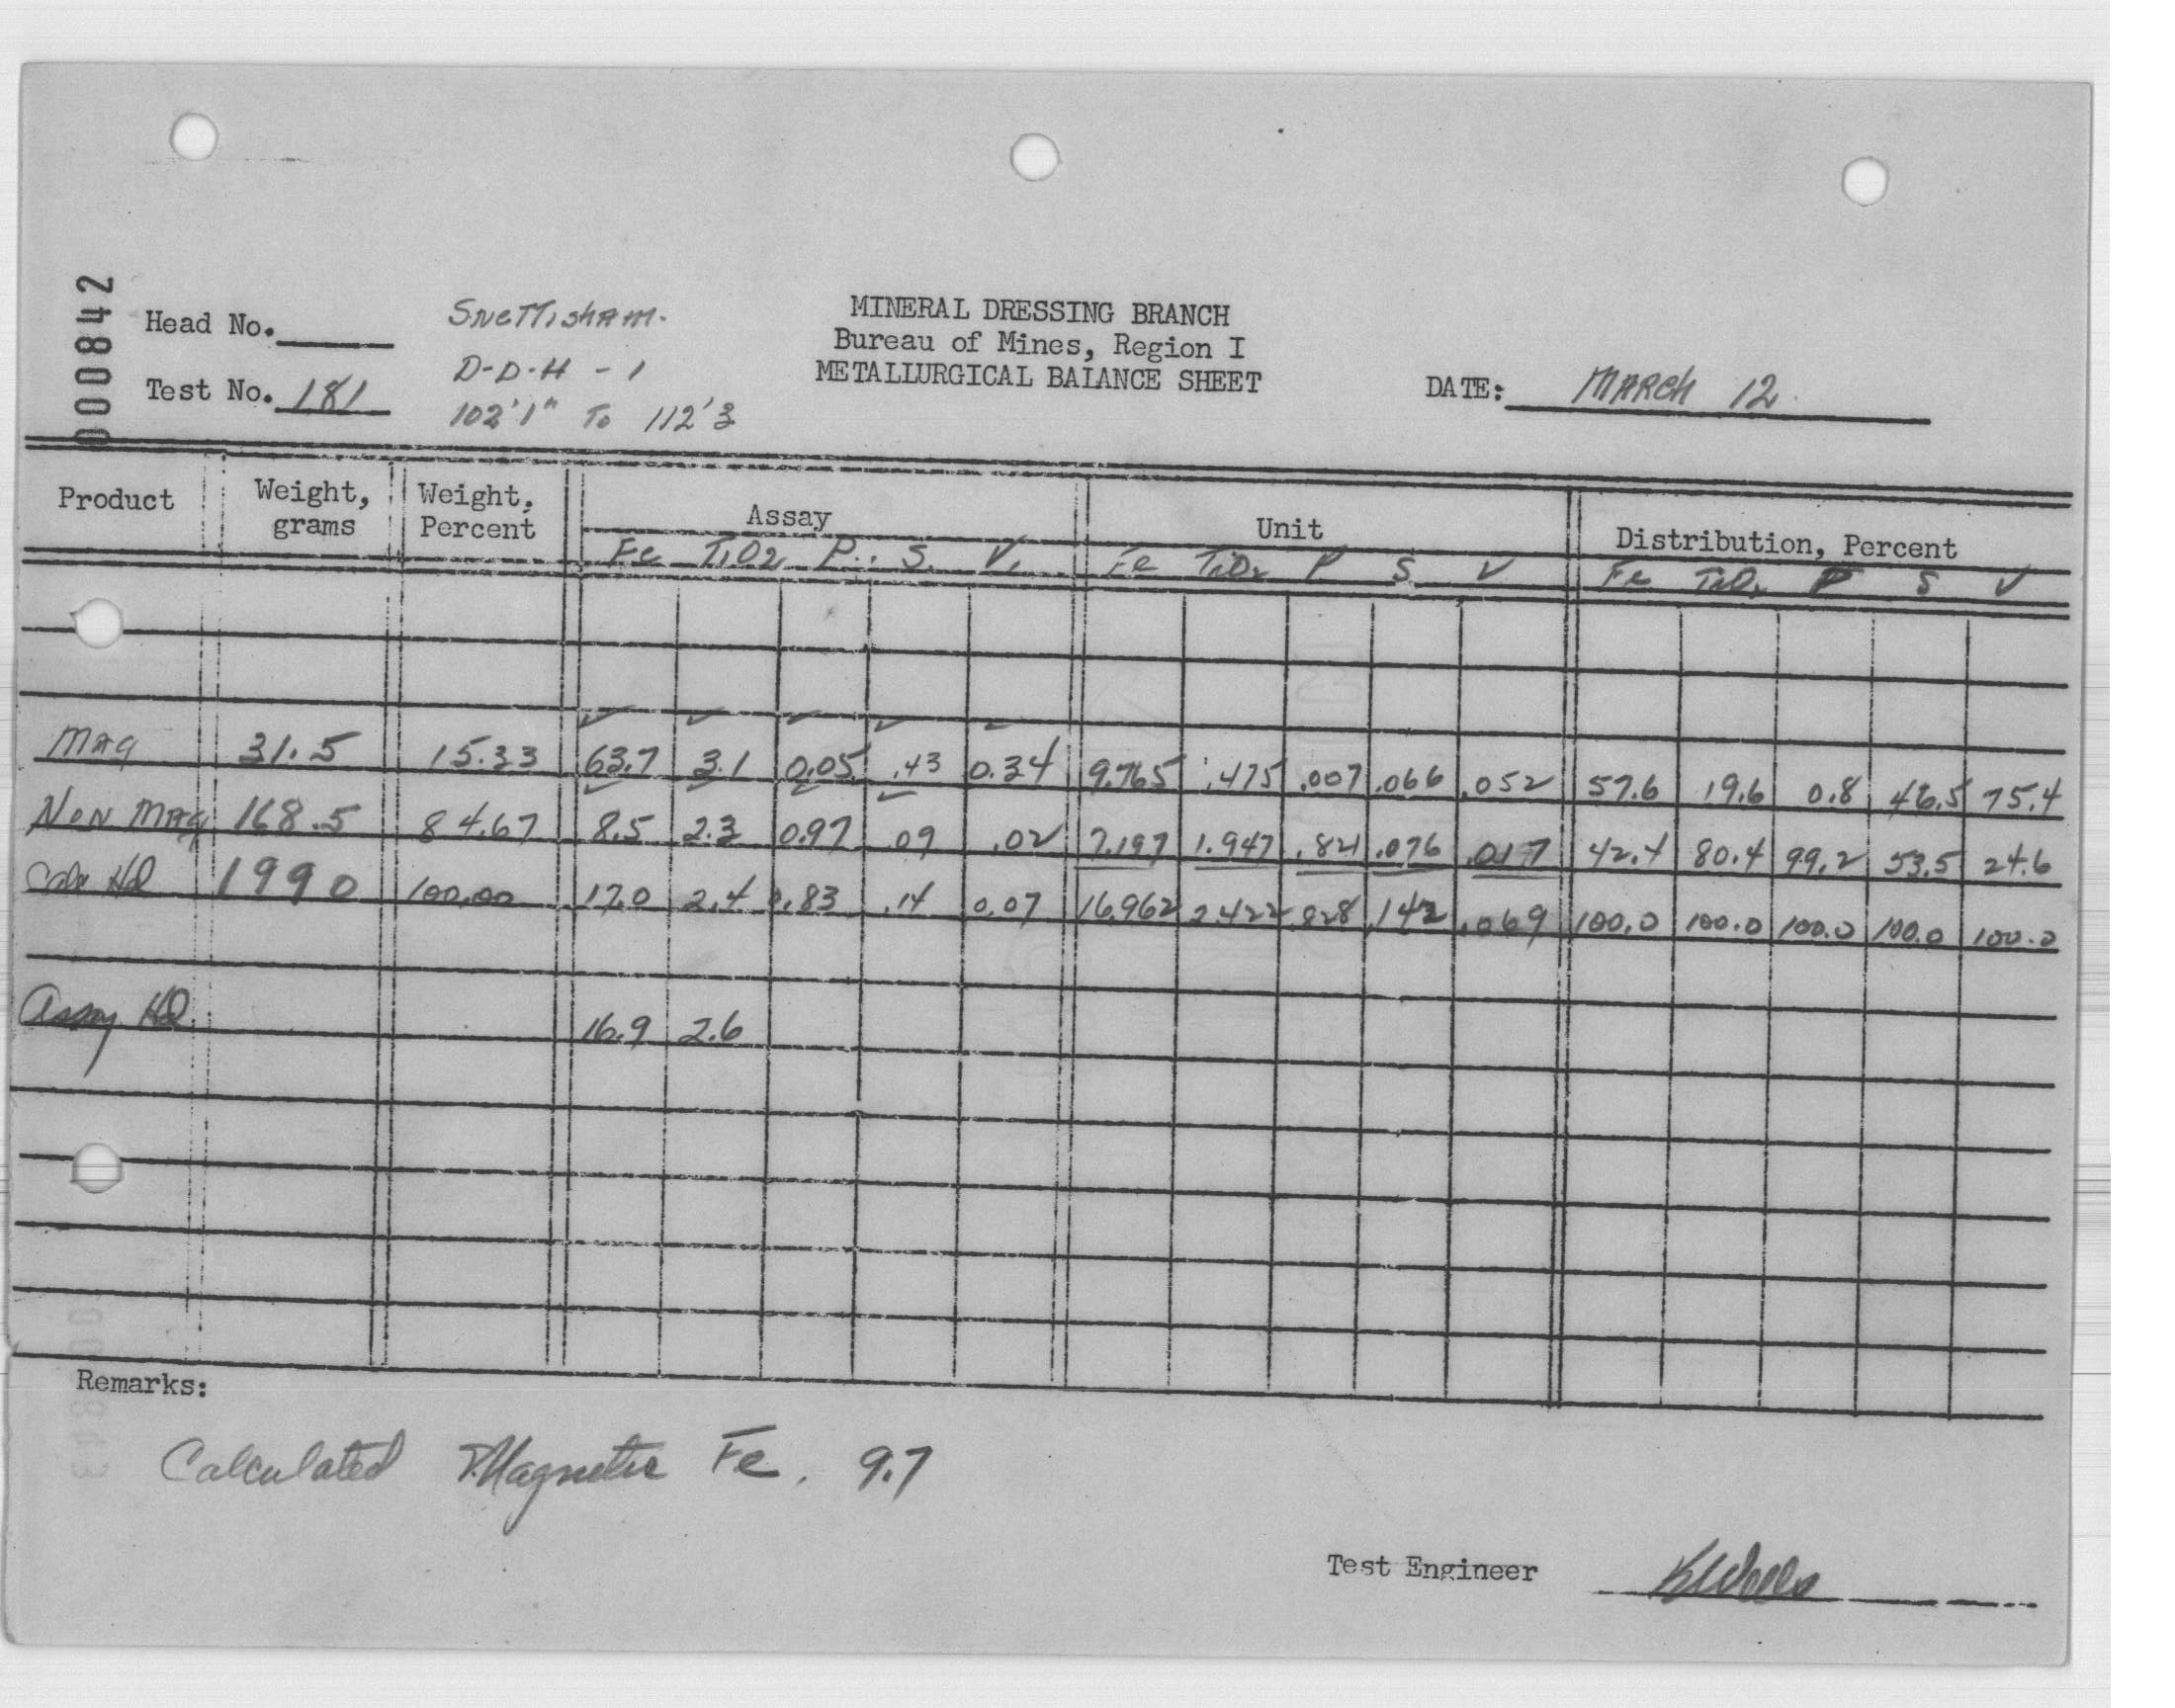 000842
Head No.
Test No. 181
Snettisham.
D-D-H - 1
102'1" To 112'3
MINERAL DRESSING BRANCH
Bureau of Mines, Region I
METALLURGICAL BALANCE SHEET
DATE: MARCH 12.
Product Weight, grams Weight, Percent Assay Unit Distribution, Percent
Fe TiO2 P. S. V. Fe TiO2 P S V Fe TiO2 P S V
Mag 31.5 15.33 63.7 3.1 0.05 .43 0.34 9.765 .475 .007 .066 .052 57.6 19.6 0.8 46.5 75.4
Non Mag 168.5 84.67 8.5 2.3 0.97 .09 .02 7.197 1.947 .821 .076 .017 42.4 80.4 99.2 53.5 24.6
Calc Hd 1990 100.00 17.0 2.4 0.83 .14 0.07 16.962 2.422 .828 .142 .069 100.0 100.0 100.0 100.0 100.0
Assay Hd. 16.9 2.6
Remarks:
Calculated Magnetic Fe. 9.7
Test Engineer